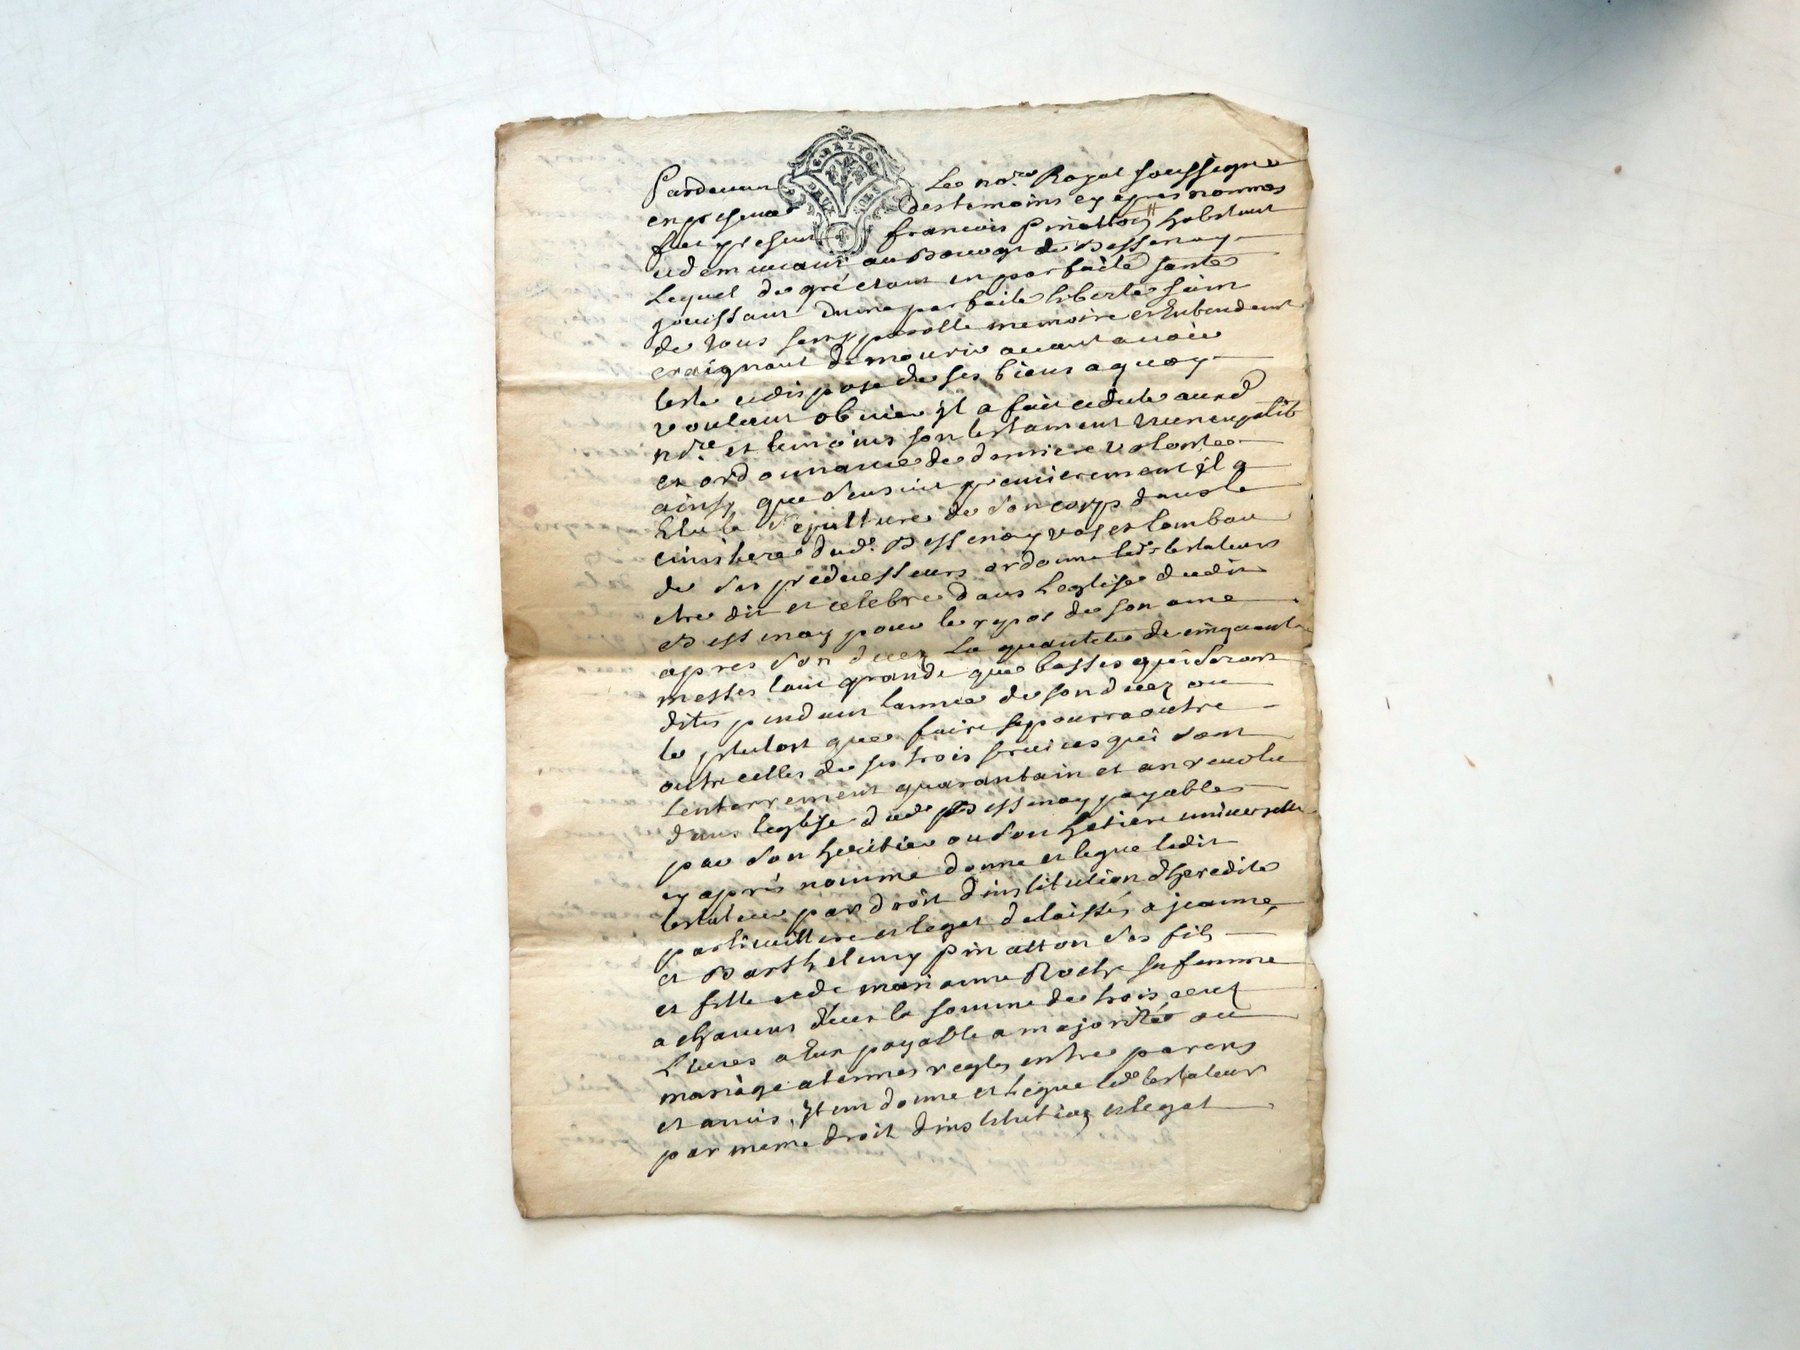 GNALYON
DEUX SOLS
Pardevant Le no.re Royal soussigne
en presence des temoins cy apres nommes
fut present francois Pinatton habitant
et demeurant au Bourg de Bessenay
Lequel de gré etant en parfaite sante
jouissant dune parfaite liberte sain
de tous sens parolle memoire et Entendement
craignant de mourir avant avoir
teste et dispose de ses biens a quoy
voulant obvier jl a fait et dicte aud
no.re et temoins son testament
et ordonnance de derniere volonte
ainsy que sensuit premierement jl a
Elu la sepulture de son corps dans le
cimithere dud. Bessenay vas et tombau
de ses predecesseurs ordonne ledt testateur
etre dit et celebre dans Leglise dudit
Bessenay pour le repos de son ame
apres son decez La quantite de cinquante
messes tant grande que basses qui seront
dites pendant lannee de son decez ou
le plutost que faire se pourra outre
outre celles de ses trois services qui sont
Lenterrement quarantain et an revolu
dans leglise dud Bessenay payables
par son heritier ou son hetiere universelle
cy apres nomme donne et legue ledit
testateur par droit dinstitution dheredite
particuilliere et legat delaissés a jeanne,
et Barthelemy pinatton ses fils
et fille et de marianne Roche sa femme
a chacuns deux la somme de trois cent
Livres a Eux payable a majorité ou
mariage a termes regles entre parens
et amis, Jtem donne et legue led testateur
par meme droit dinstitution et legat